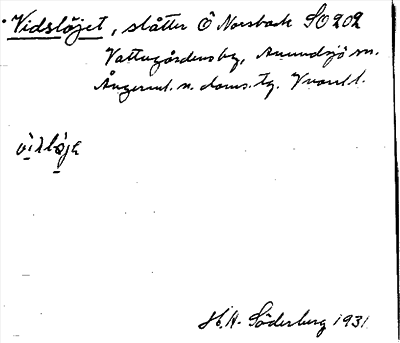 Vidslöjet, slåtter Ö Norsback SO 202
Vattugårdens by, Anundsjö sn.
Ångerml. n. doms. tg. Vnorrl.
vi̱slö̱jɛ
H. A. Söderberg 1931.